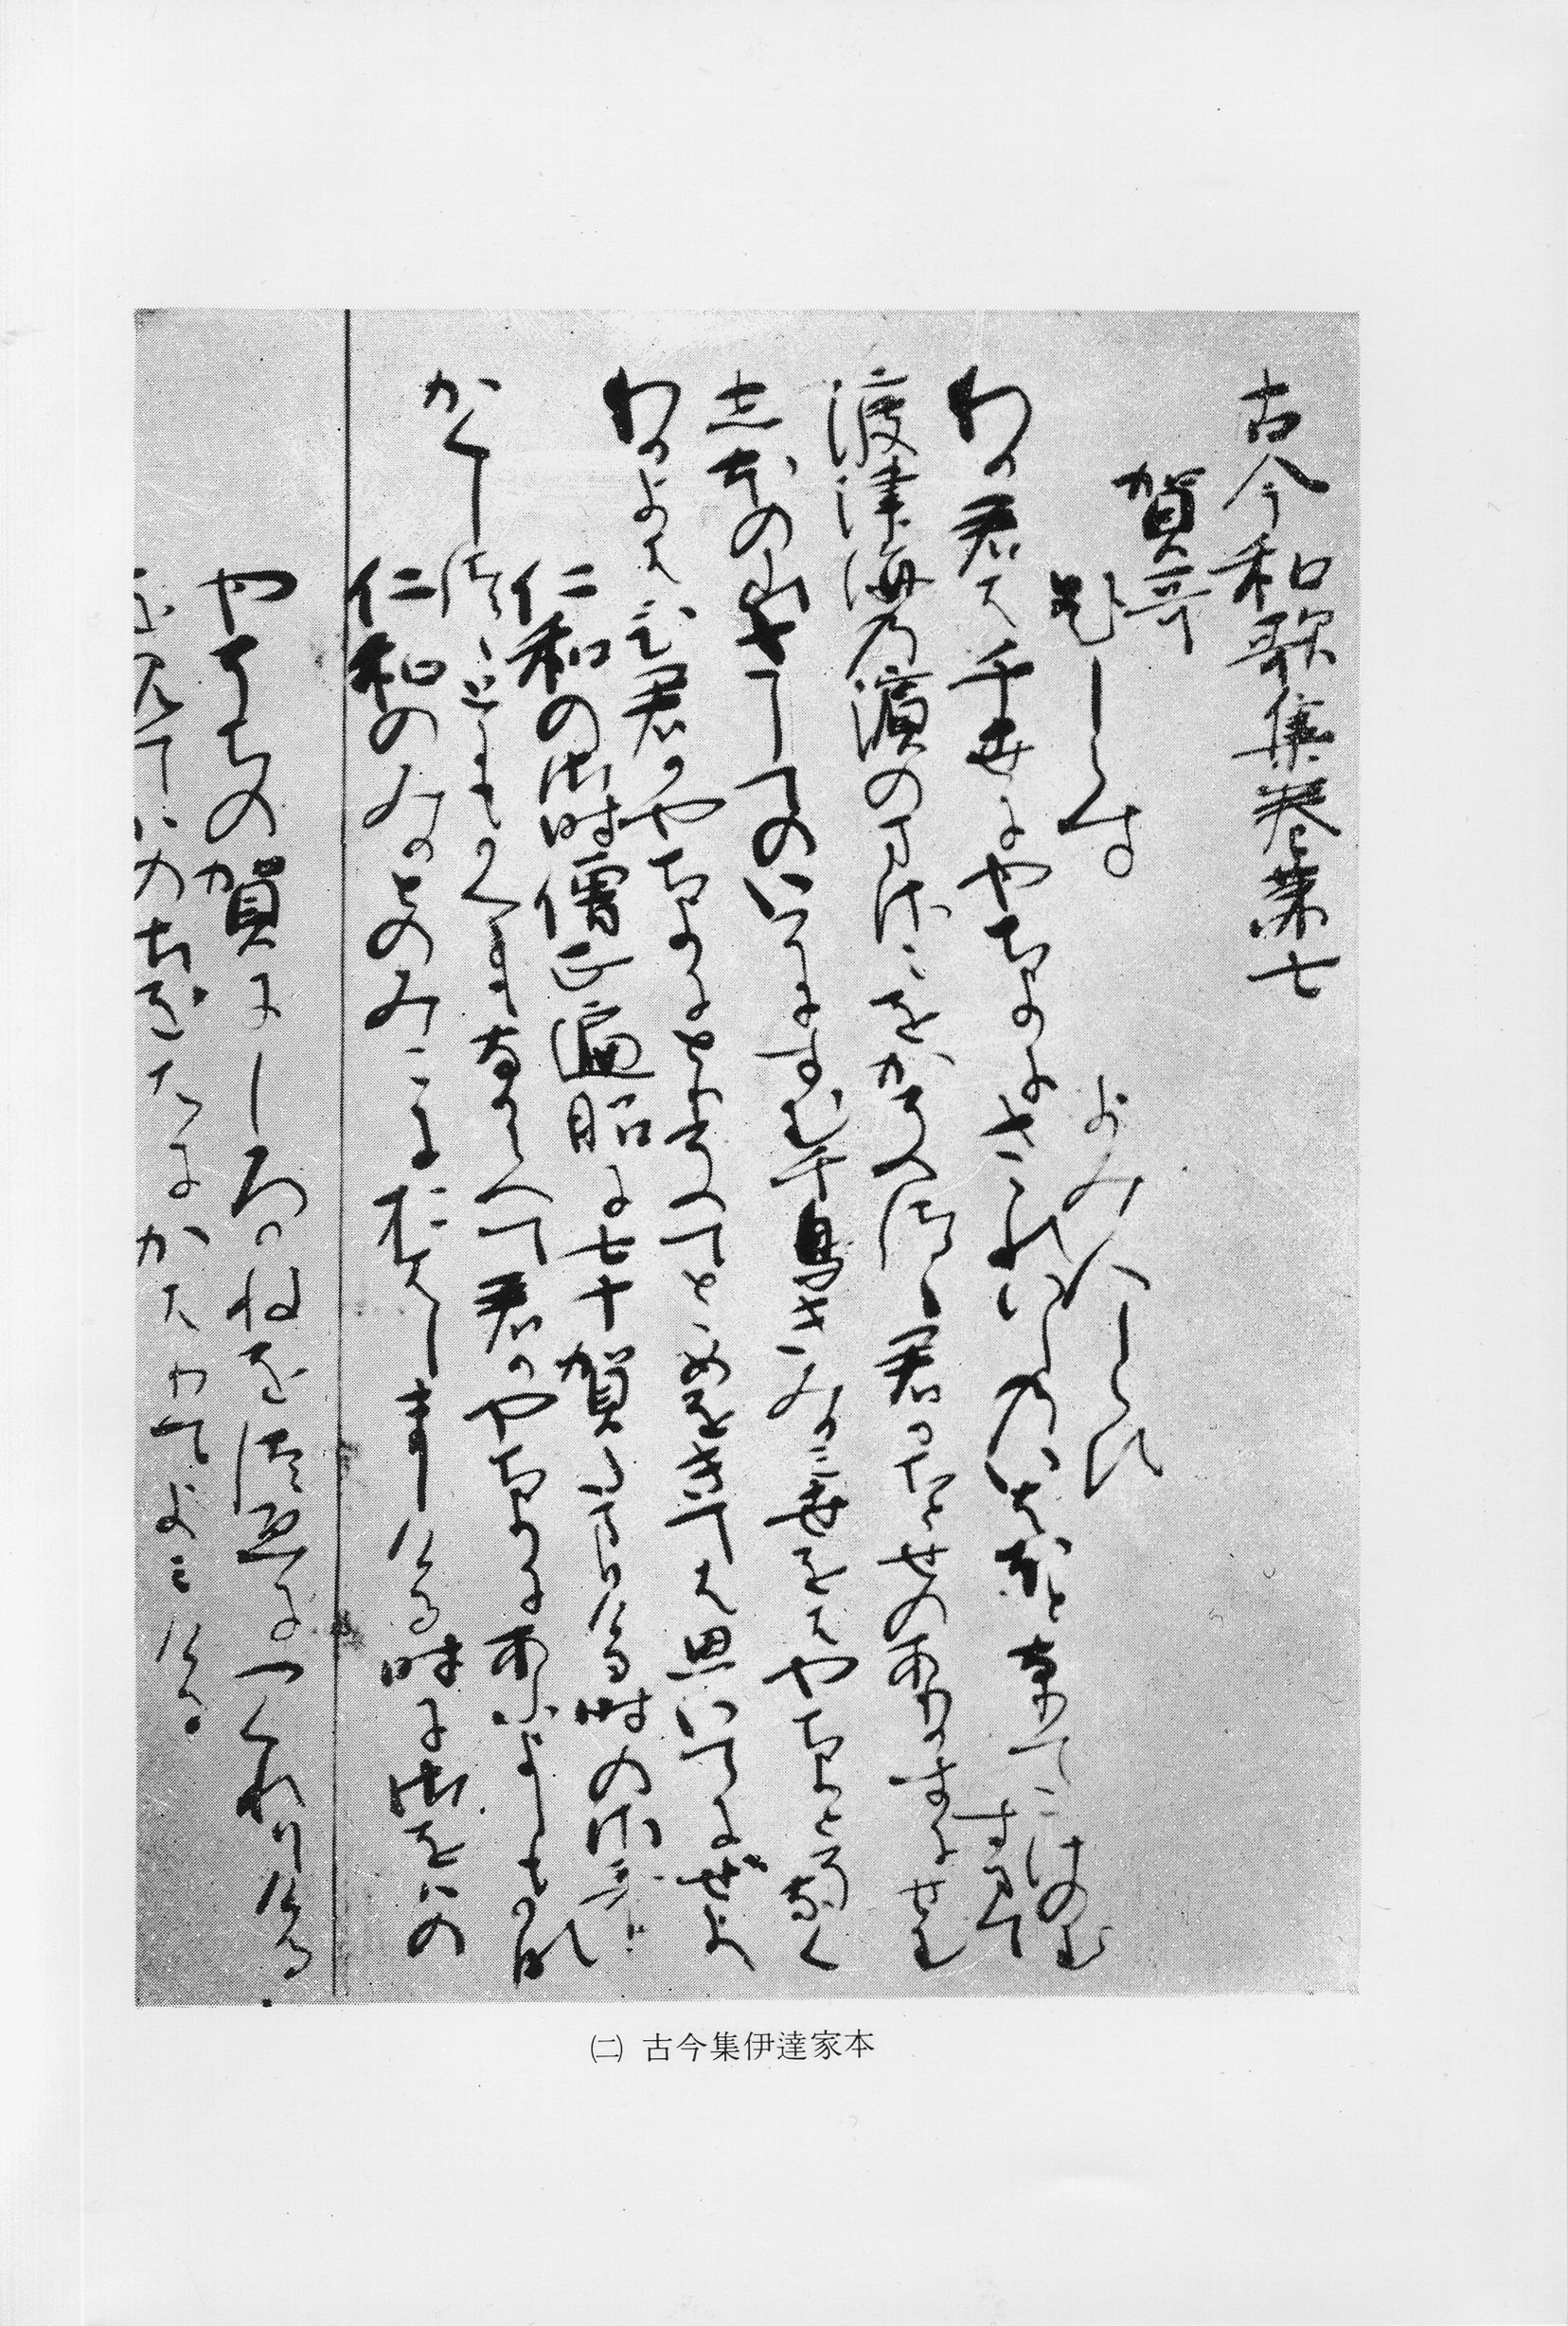 古今和歌集巻第七
賀哥
題しらす　よみ人しらす
わか君は千世にやちよにさゝれいしのいはほと成てこけのむすまて
渡津海の濱のまさこをかそへつゝ君かちとせのありかすにせむ
志ほの山さしてのいそにすむ千鳥きみか御世をはやちよとそなく
わかよはひ君かやちよにとりそへてとゝめをきては思いてにせよ
仁和の御時僧正遍昭に七十賀たまひける時の御哥
かくしつゝとにもかくにもなからへて君かやちよにあふよしも哉
仁和のみかとのみこにおはしましける時に御をはの
やそちの賀にしろかねをつゑにつくれりける
を見てかの御をはにかはりてよみける